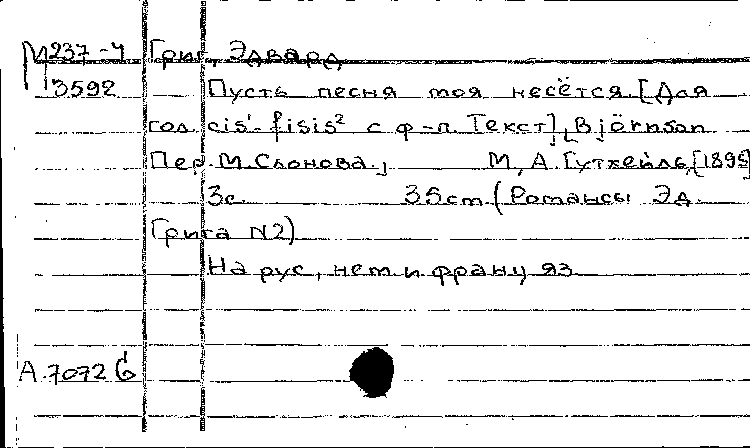 М237-4 Григ, Эдвард
3592 Пусть песня моя несётся [Для
гол. cis¹-fisis² с ф-п. Текст], Björnson
Пер. М. Слонова., М, А. Гутхейль, [1895]
3с. 35cm (Романсы Эд.
Грига N2)
На рус, нем и франц яз
А.7072 б